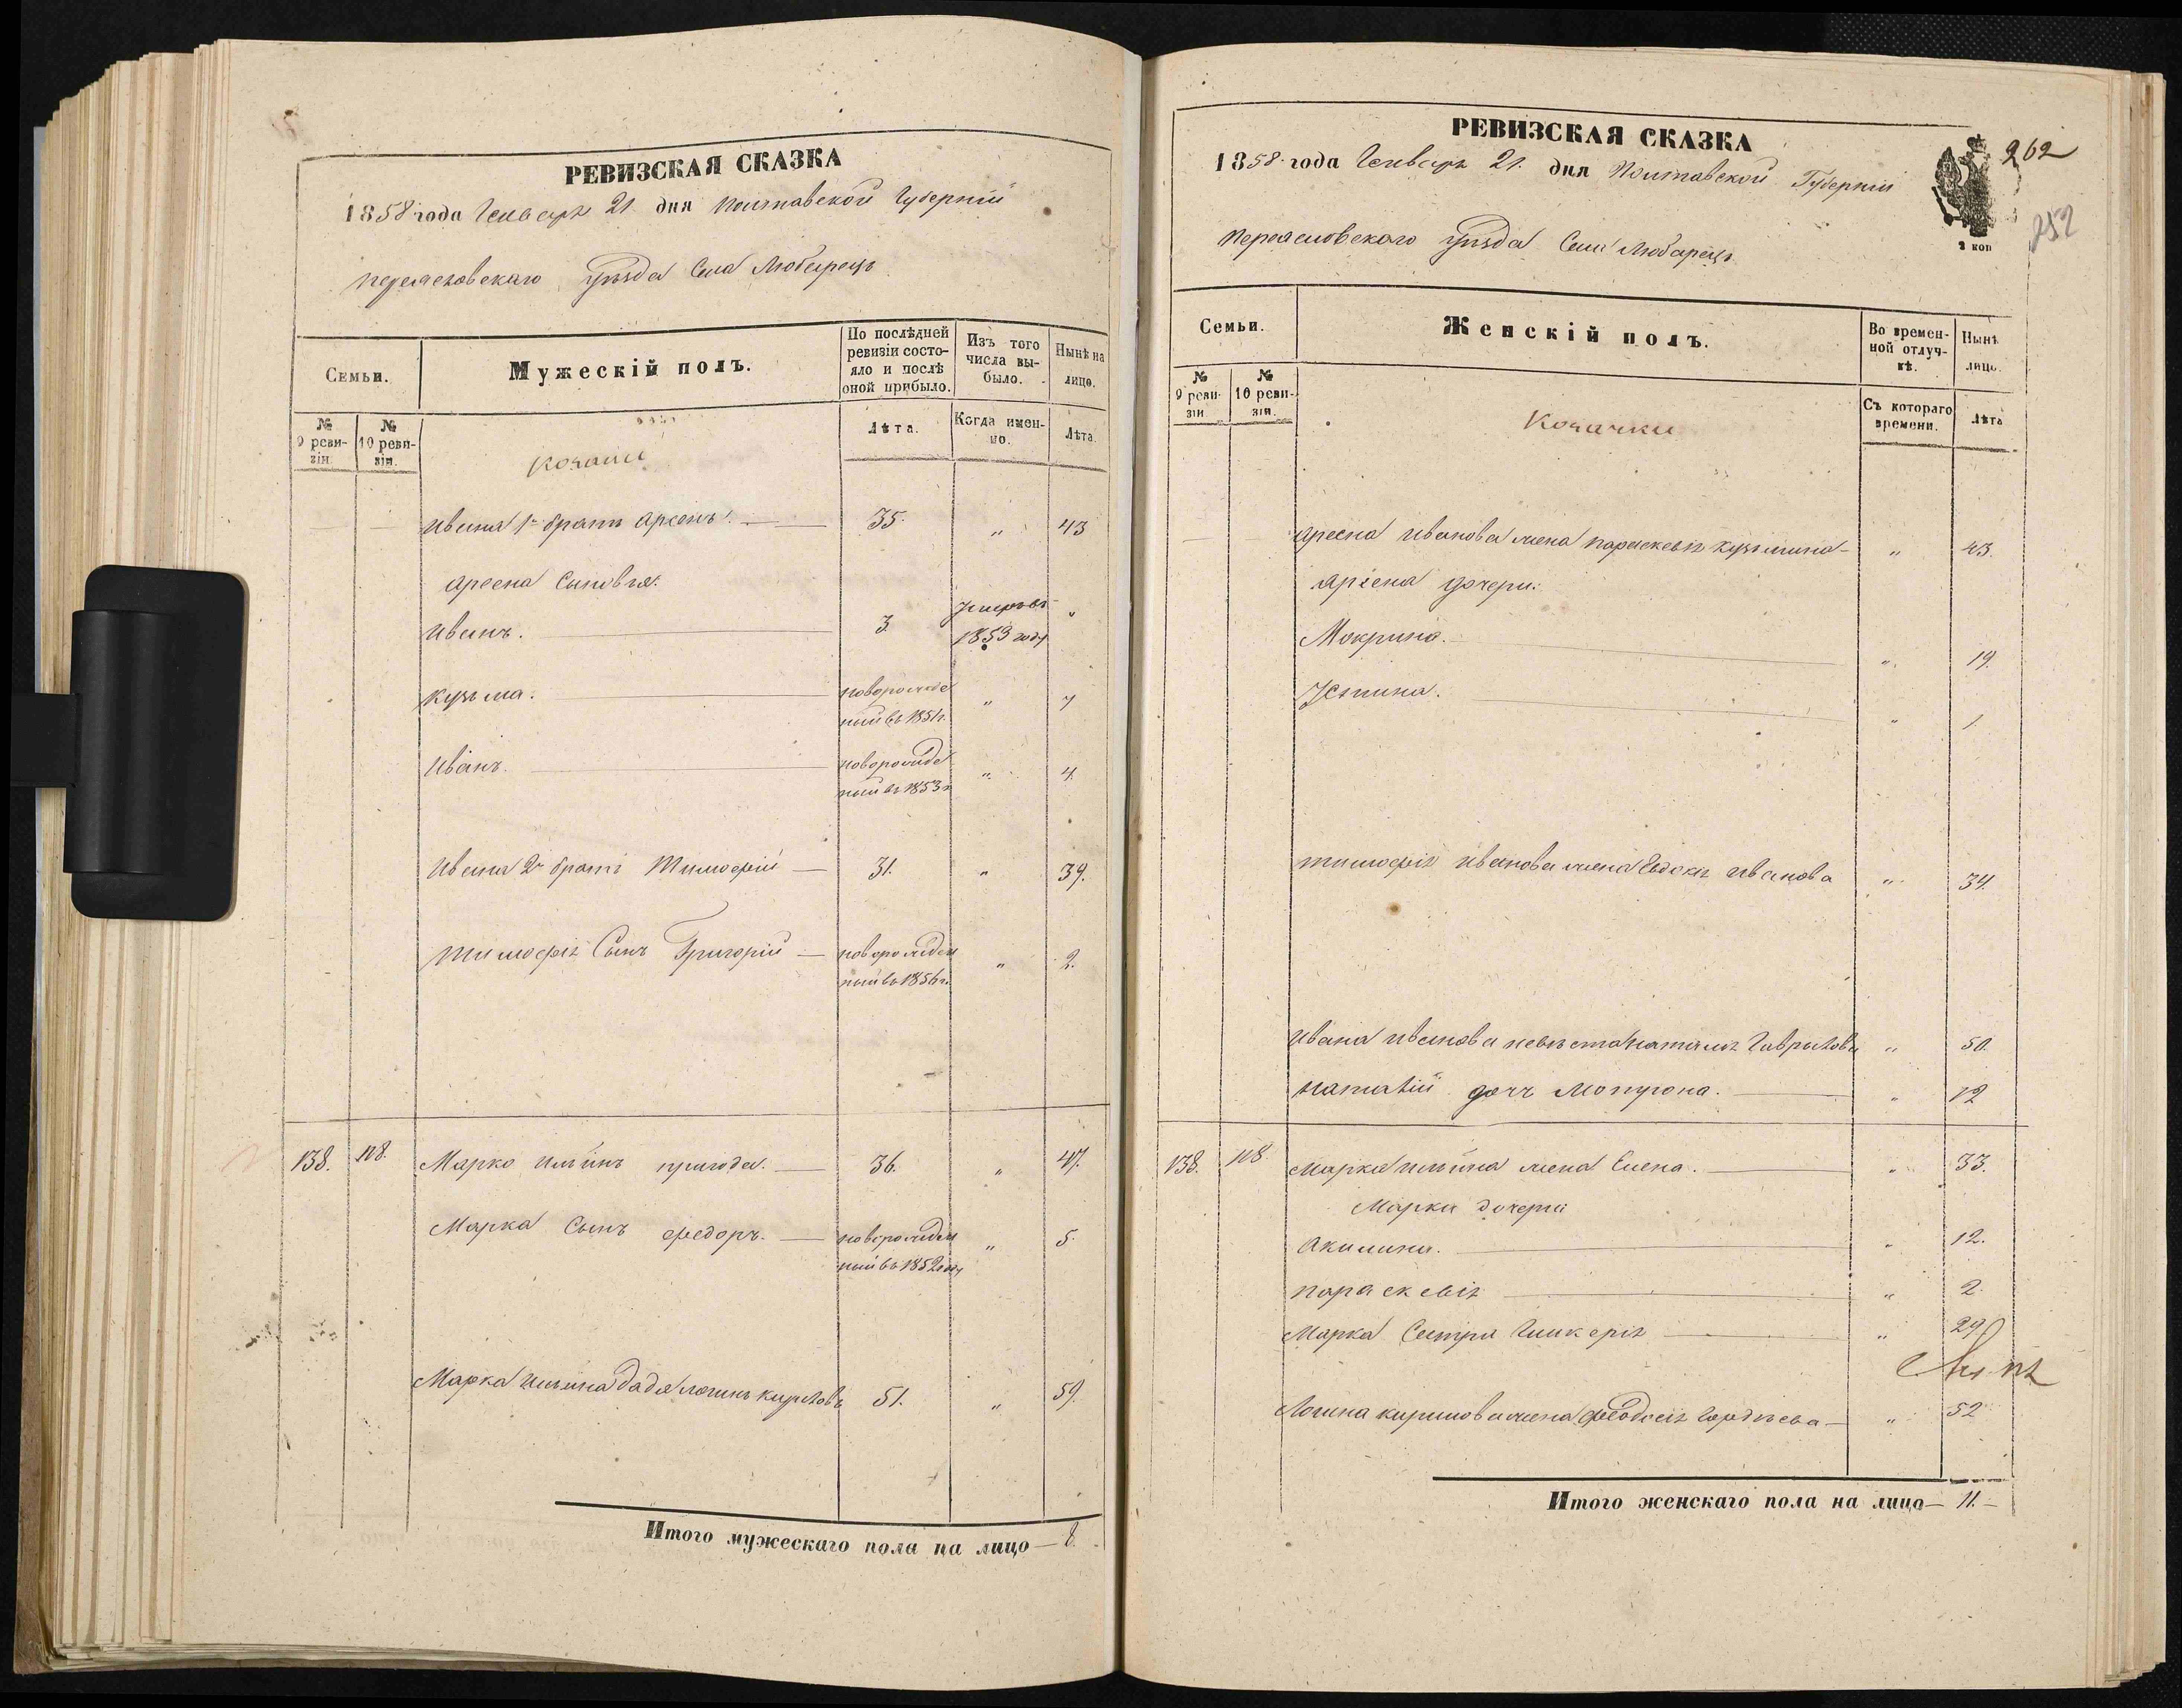 РЕВИЗСКАЯ СКАЗКА
1858 года Генваря 21 дня Полтавской Губерніи
Переясловскаго уѣзда Села Любарецъ
Семьи.
Мужескій полъ.
По послѣдней ревизіи состояло и послѣ оной прибыло.
Изъ того числа выбыло.
Нынѣ на лицо.
№ 9 ревизіи.
№ 10 ревизіи.
Лѣта.
Когда именно.
Лѣта.
Козаки
Ивана 1й братъ Арсенъ. 35. " 43
Арсена Сыновья:
Иванъ. 3 Умеръ въ 1853 году "
Кузьма. новорожденый въ 1851 г. " 7
Иванъ. новорожденый въ 1853 г. " 4.
Ивана 2й братъ Тимофій 31. " 39.
Тимофія Сынъ Григорій новорожденый въ 1856 г. " 2.
138. 118. Марко Ильинъ Пригода. 36. " 47.
Марка Сынъ Федоръ. новорожденый въ 1852 году " 5.
Марка Ильина дядя Логинъ Кириловъ 51. " 59.
Итого мужескаго пола на лицо — 8.
РЕВИЗСКАЯ СКАЗКА
1858 года Генваря 21 дня Полтавской Губерніи
Переясловскаго уѣзда Села Любарецъ
262
252
3 коп
Семьи.
Женскій полъ.
Во временной отлучкѣ.
Нынѣ лицо.
№ 9 ревизіи
№ 10 ревизіи.
Съ котораго времени.
Лѣта
Козачки
Арсена Иванова жена Параскевія Кузьмина " 43.
Арсена дочери:
Мокрина. " 19.
Устина. " 1.
Тимофія Иванова жена Евдокія Иванова " 34.
Ивана Иванова невѣста Наталія Гаврилова " 50.
Наталіи дочь Мотрона. " 12
138. 118. Марка Ильина жена Елена. " 33.
Марка дочери
Акилина. " 12.
Параскевія " 2.
Марка Сестра Гликерія " 29
Логина Кирилова жена Феодосія Гордѣева " 52
Итого женскаго пола на лицо — 11. —